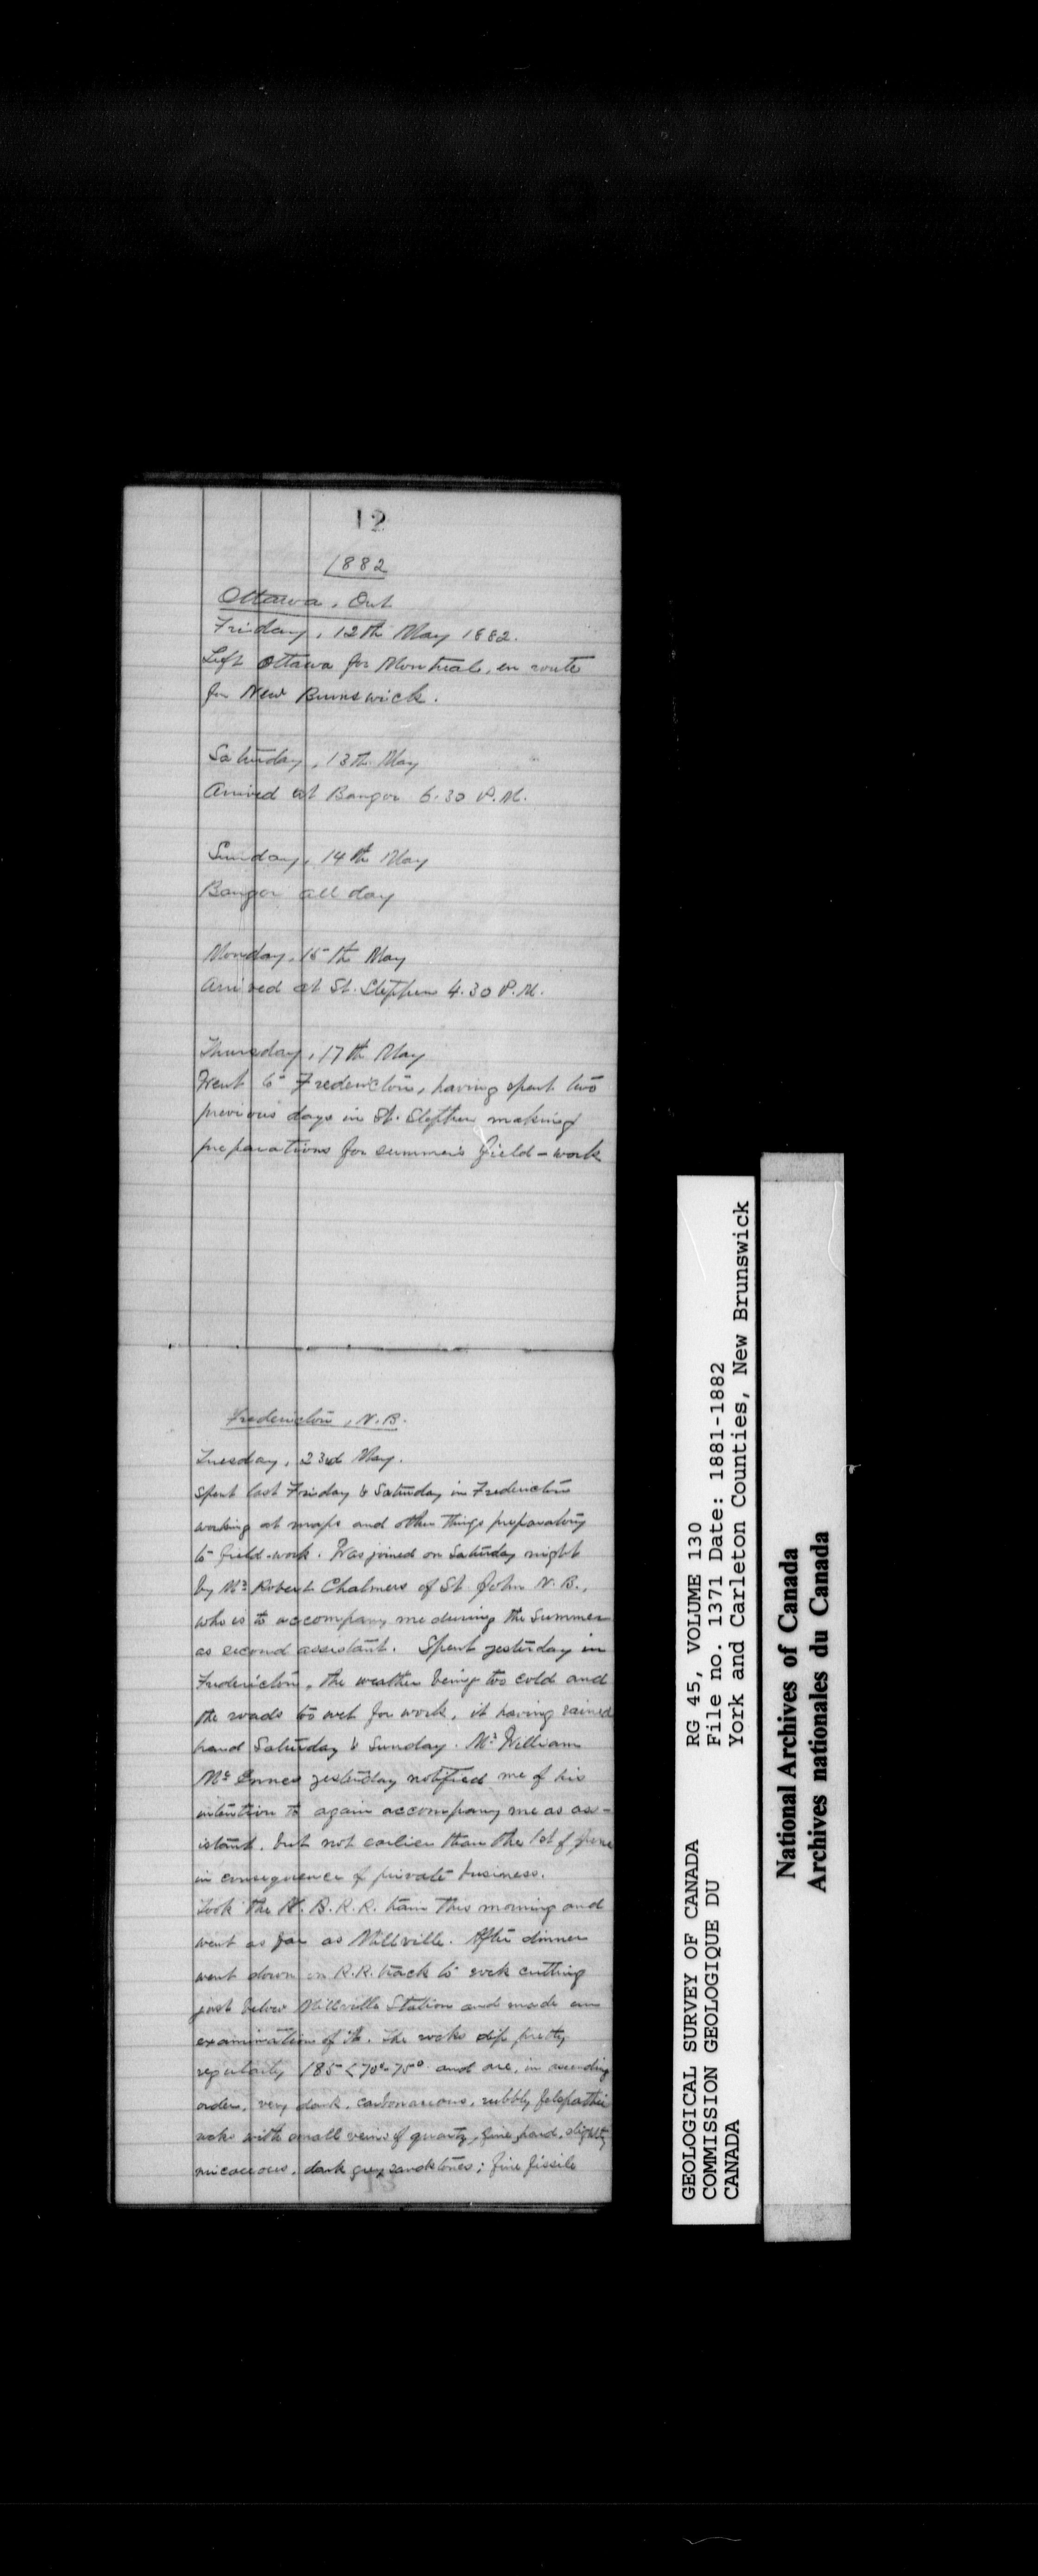 12
1882
Ottawa, Ont
Friday, 12th May 1882.
Left Ottawa for Montreal, en route
for New Brunswick.
Saturday, 13th May
Arrived at Bangor 6.30 P.M.
Sunday, 14th May
Bangor all day
Monday, 15th May
Arrived at St. Stephen 4.30 P.M.
Thursday, 17th May
Went to Fredericton, having spent two
previous days in St. Stephen making
preparations for summer's field-work
Fredericton, N.B.
Tuesday, 23rd May.
Spent last Friday & Saturday in Fredericton
working at maps and other things preparatory
to field-work. Was joined on Saturday night
by Mr Robert Chalmers of St John N.B.,
who is to accompany me during the summer
as second assistant. Spent yesterday in
Fredericton, the weather being too cold and
the roads too wet for work, it having rained
hard Saturday & Sunday. Mr William
McInnes yesterday notified me of his
intention to again accompany me as ass-
istant, but not earlier than the 1st of June
in consequence of private business.
Took the N.B.R.R. train this morning and
went as far as Millville. After dinner
went down on R.R. track to rock cutting
just below Millville Station and made an
examination of it. The rocks dip pretty
regularly 185 < 70°-75° and are, in ascending
order, very dark, carbonaceous, rubbly felspathic
rocks with small veins of quartz, fine, hard, slightly
micaceous, dark grey sandstones; fine fissile
GEOLOGICAL SURVEY OF CANADA
COMMISSION GEOLOGIQUE DU
CANADA
RG 45, VOLUME 130
File no. 1371 Date: 1881-1882
York and Carleton Counties, New Brunswick
National Archives of Canada
Archives nationales du Canada